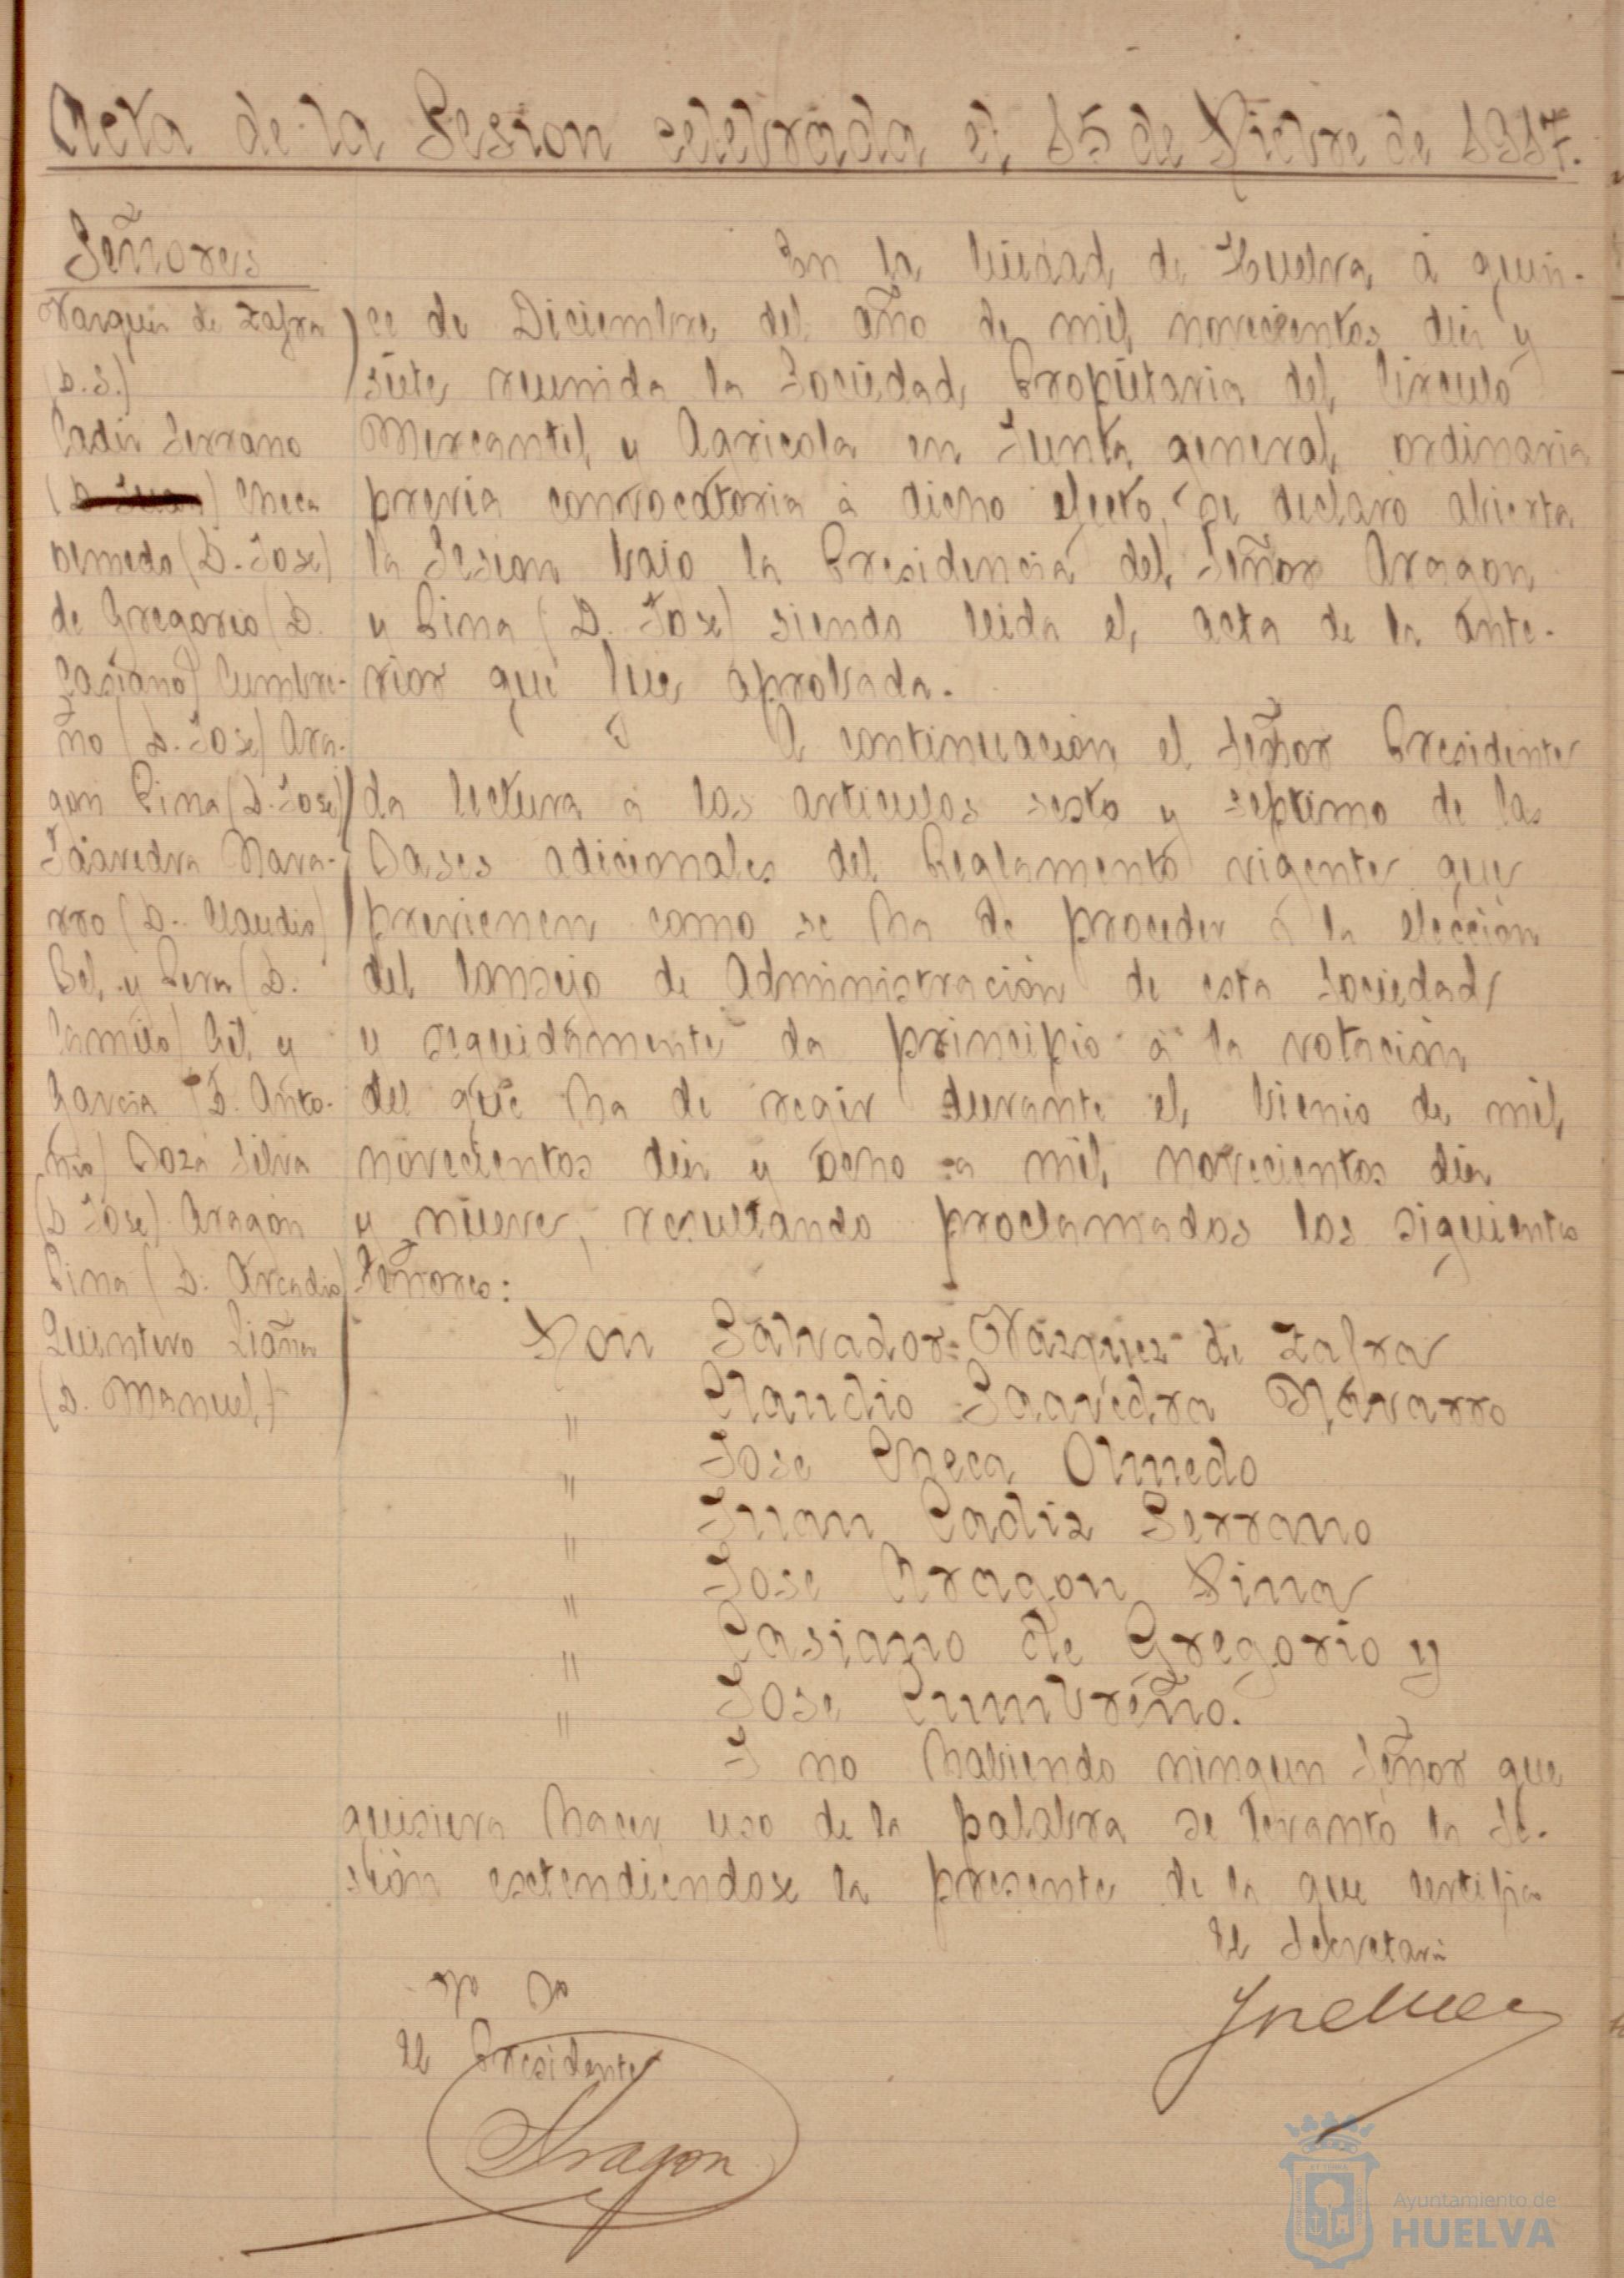 Acta de la Sesion celebrada el 15 de Dicbre de 1917.
Señores
Vazquez de Zafra
(D. S.)
Cadiz Serrano
(D. Juan) Checa
Olmedo (D. Jose)
de Gregorio (D.
Casiano) Cumbre-
ño (D. Jose) Ara-
gon Pina (D. Jose)
Saavedra Nava-
rro (D. Claudio)
Bel y Pera (D.
Camilo) Gil y
Garcia (D. Anto-
nio) Daza Silva
(D Jose) Aragon
Pina (D. Arcadio)
Quintero Liañez
(D. Manuel)
En la Ciudad de Huelva á quin-
ce de Diciembre del año de mil novecientos diez y
siete reunida la Sociedad Propietaria del Circulo
Mercantil y Agricola en Junta general ordinaria
previa convocatoria á dicho efecto, se declaró abierta
la Sesion bajo la Presidencia del Señor Aragon
y Pina (D. Jose) siendo leida el acta de la ante-
rior que fue aprobada.
A continuación el Señor Presidente
da lectura á los articulos sesto y septimo de las
Bases adicionales del Reglamento vigente que
previenen como se ha de proceder á la elección
del Consejo de Administración de esta Sociedad
y seguidamente da principio á la votación
del que ha de regir durante el bienio de mil
novecientos diez y ocho a mil novecientos diez
y nueve, resultando proclamados los siguientes
Señores:
Don Salvador Vázquez de Zafra
" Claudio Saavedra Navarro
" Jose Checa Olmedo
" Juan Cadiz Serrano
" Jose Aragon Pina
" Casiano de Gregorio y
" Jose Cumbreño.
Y no habiendo ningun Señor que
quisiera hacer uso de la palabra se levantó la Se-
sión estendiendose la presente de la que certifico
El Secretario
Vº Bº
El Presidente
Aragon
Ayuntamiento de
HUELVA